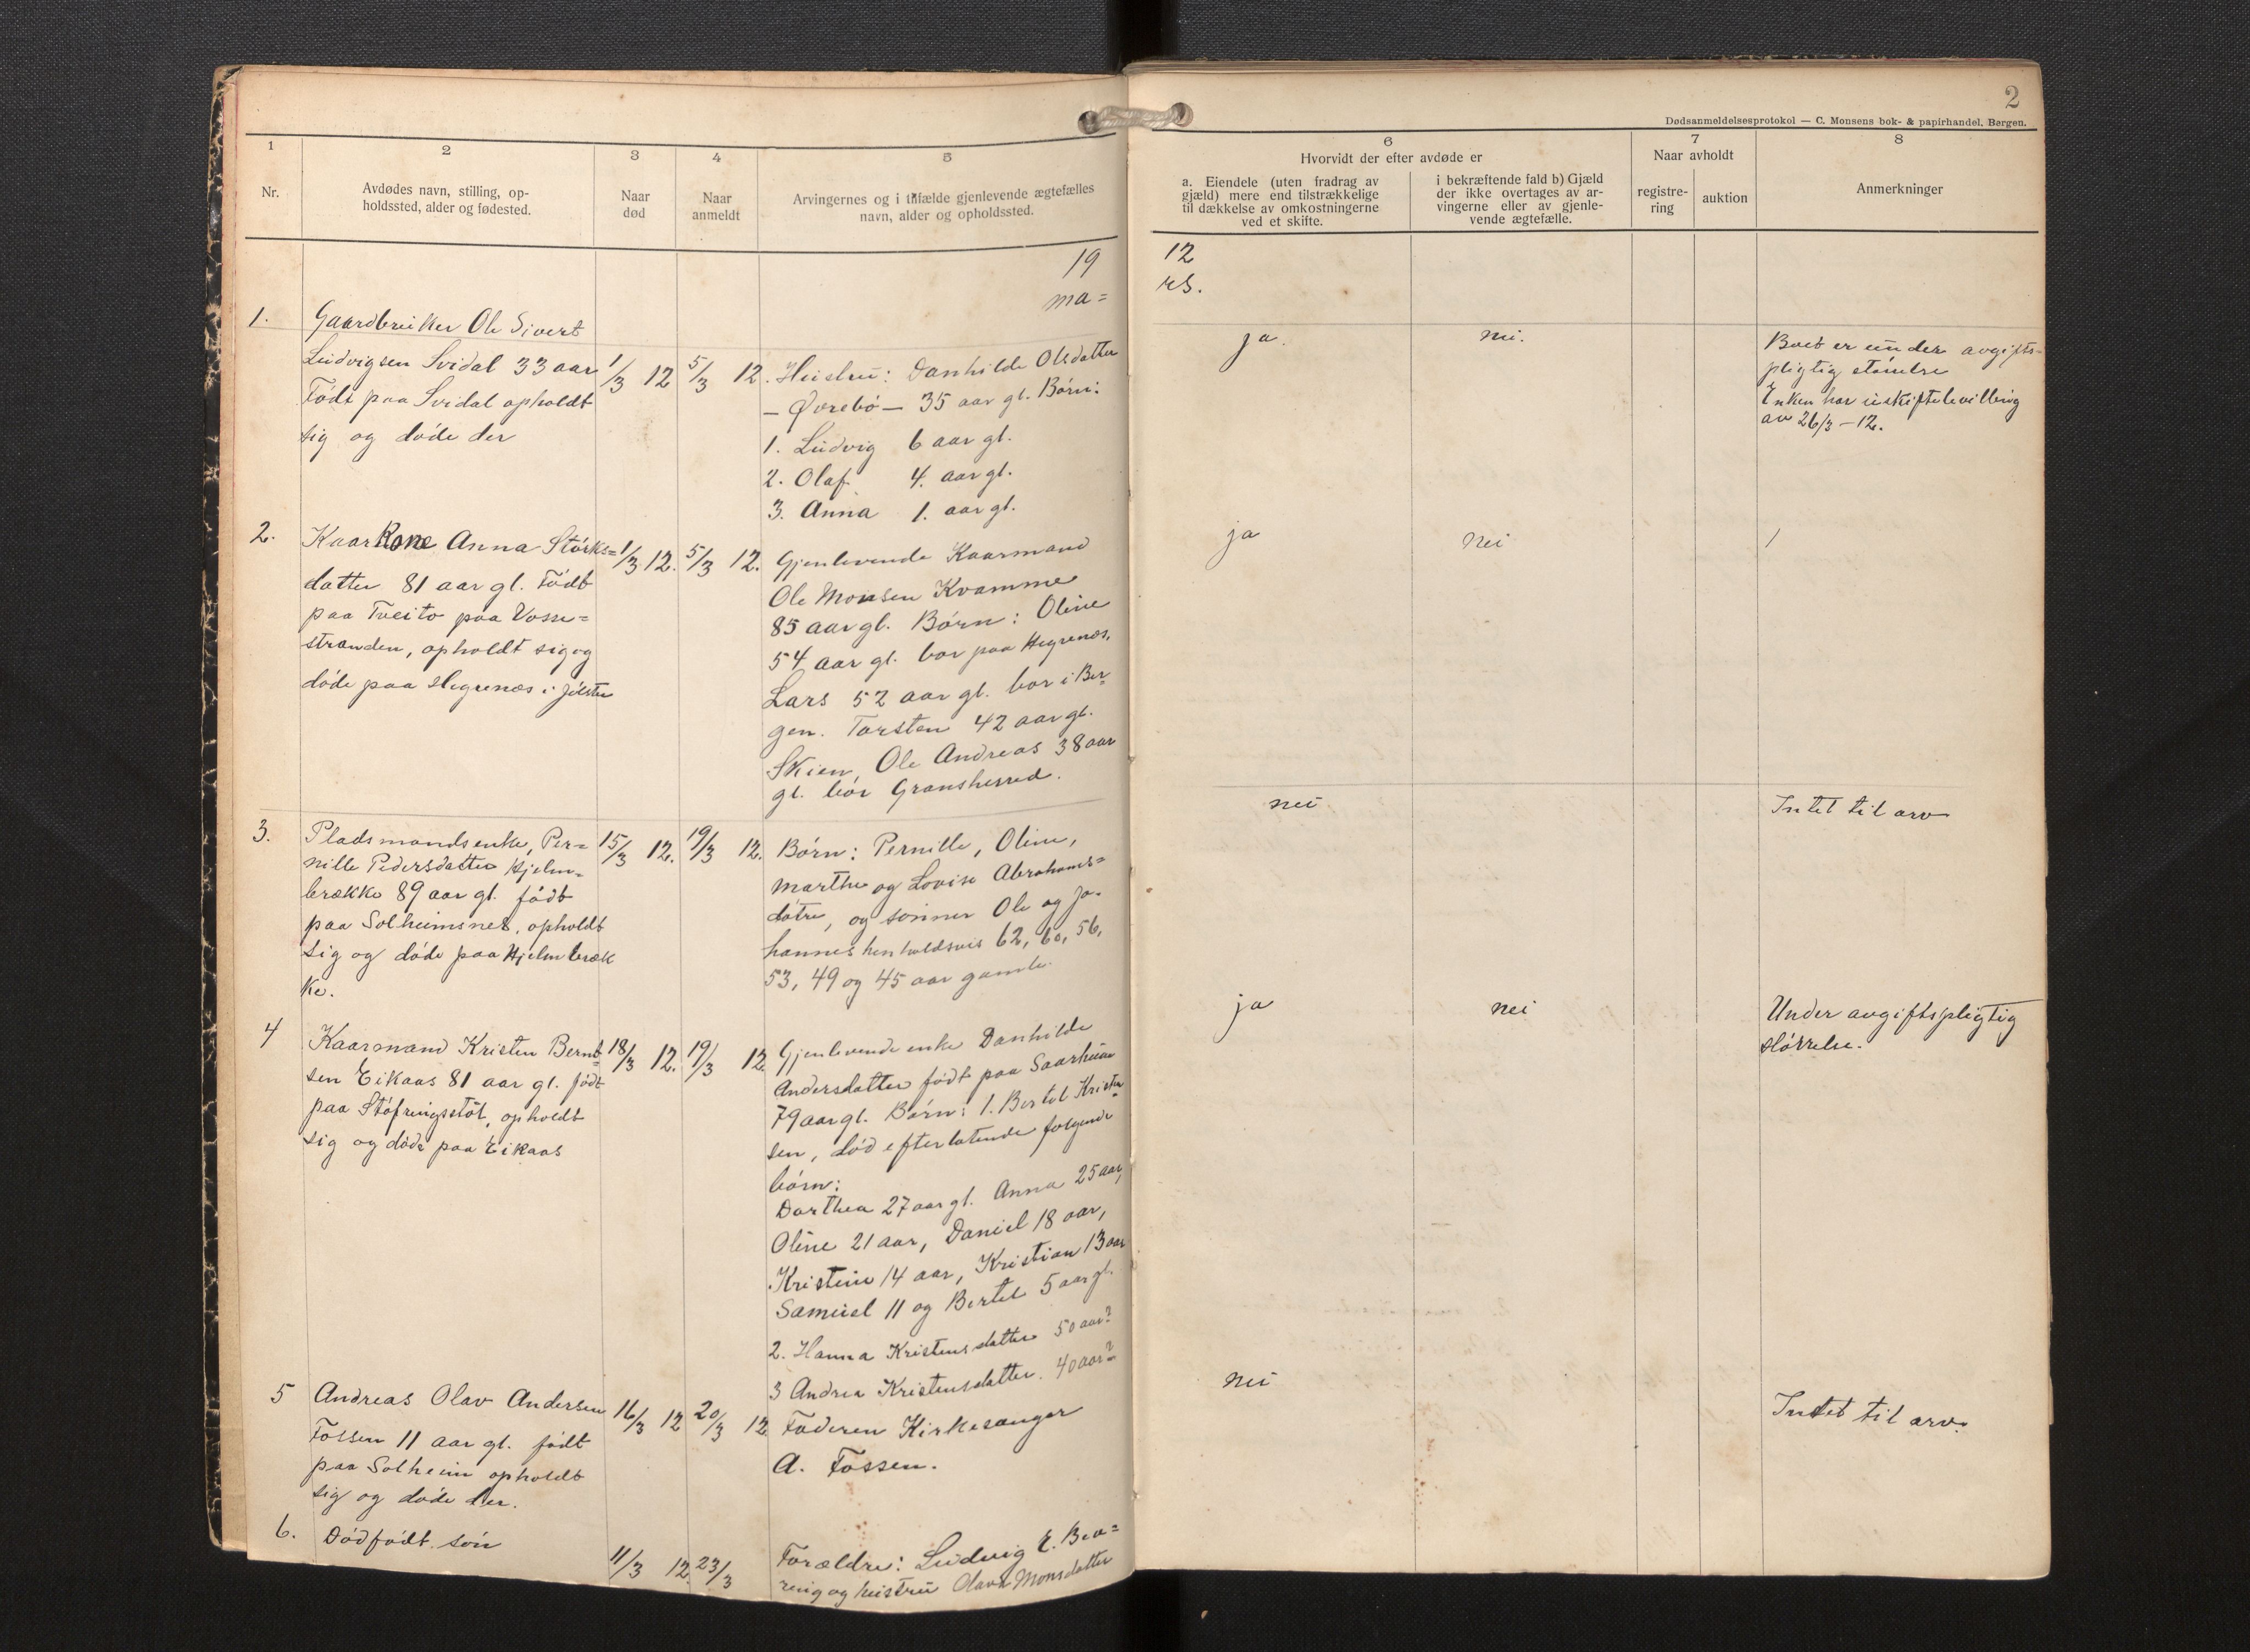 2
Dødsanmeldelsesprotokol — C. Monsens bok- & papirhandel, Bergen.
1
Nr.
2
Avdødes navn, stilling, op-
holdssted, alder og fødested.
3
Naar
død
4
Naar
anmeldt
5
Arvingernes og i tilfælde gjenlevende ægtefælles
navn, alder og opholdssted.
6
Hvorvidt der efter avdøde er
a. Eiendele (uten fradrag av
gjæld) mere end tilstrækkelige
til dækkelse av omkostningerne
ved et skifte.
i bekræftende fald b) Gjæld
der ikke overtages av ar-
vingerne eller av gjenle-
vende ægtefælle.
7
Naar avholdt
registre-
ring
auktion
8
Anmerkninger
19 12
ma= rs.
1.
Gaardbruker Ole Sivert
Ludvigsen Svidal 33 aar
Født paa Svidal opholdt
sig og døde der
1/3 12
5/3 12.
Hustru: Danhilde Olsdatter
— Øvrebø — 35 aar gl. Børn:
1. Ludvig 6 aar gl.
2. Olaf 4. aar gl.
3. Anna 1. aar gl.
ja.
nei.
Boet er under avgifts=
pligtig størrelse
Enken har uskiftebevilling
av 26/3 – 12.
2.
Kaarkone Anna Størks=
datter 81 aar gl. Født
paa Tveito paa Vosse=
stranden, opholdt sig og
døde paa Hegrenæs i Jølster
1/3 12.
5/3 12.
Gjenlevende Kaarmand
Ole Monsen Kvamme
85 aar gl. Børn: Oline
54 aar gl. bor paa Hegrenæs,
Lars 52 aar gl. bor i Ber=
gen. Torsten 42 aar gl.
Skien, Ole Andreas 38 aar
gl. bor Gransherred.
ja
nei
/
3.
Pladsmandsenke, Per=
nille Pedersdatter Hjelm=
brække 89 aar gl. født
paa Solheimsnes, opholdt
sig og døde paa Hjelmbræk
ke.
15/3 12.
19/3 12.
Børn: Pernille, Oline,
Marthe og Lovise Abrahams=
døtre, og sønner Ole og Jo-
hannes henholdsvis 62, 60, 56,
53, 49 og 45 aar gamle.
nei
Intet til arv
4
Kaarmand Kristen Bernt=
sen Eikaas 81 aar gl. født
paa Støfringsstøl, opholdt
sig og døde paa Eikaas
18/3 12.
19/3 12
Gjenlevende enke Danhilde
Andersdatter født paa Saarheim
79 aar gl. Børn: 1. Bertel Kristen=
sen, død efterlatende følgende
børn:
Dorthea 27 aar gl. Anna 25 aar,
Oline 21 aar, Daniel 18 aar,
Kristine 14 aar, Kristian 13 aar
Samuel 11 og Bertel 5 aar gl.
2. Hanna Kristensdatter 50 aar?
3 Andrea Kristensdatter. 40 aar?
ja
nei
Under avgiftspligtig
størrelse.
5
Andreas Olav Andersen
Fossen 11 aar gl. født
paa Solheim opholdt
sig og døde der.
16/3 12
20/3 12
Faderen Kirkesanger
A. Fossen.
nei
Intet til arv.
6.
Dødfødt søn
11/3 12.
23/3
Forældre: Ludvig E. Bea=
ring og hustru Olava Monsdatter